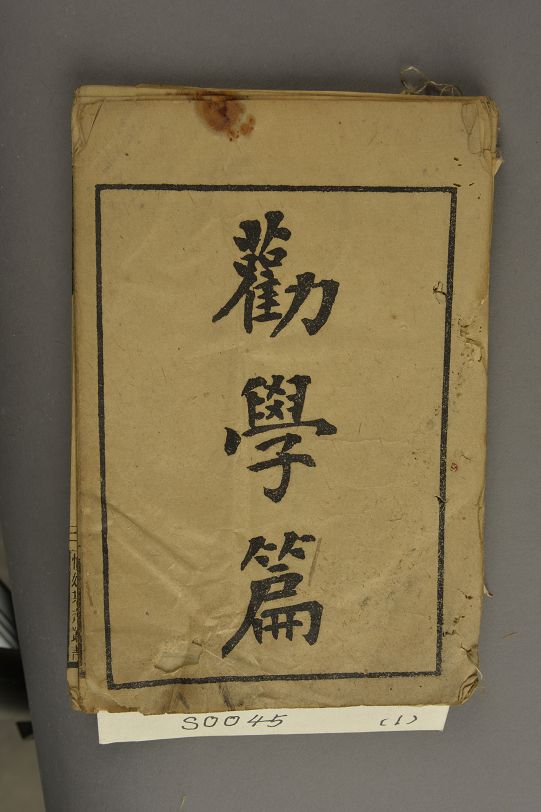 勸學篇
S0045 (1)